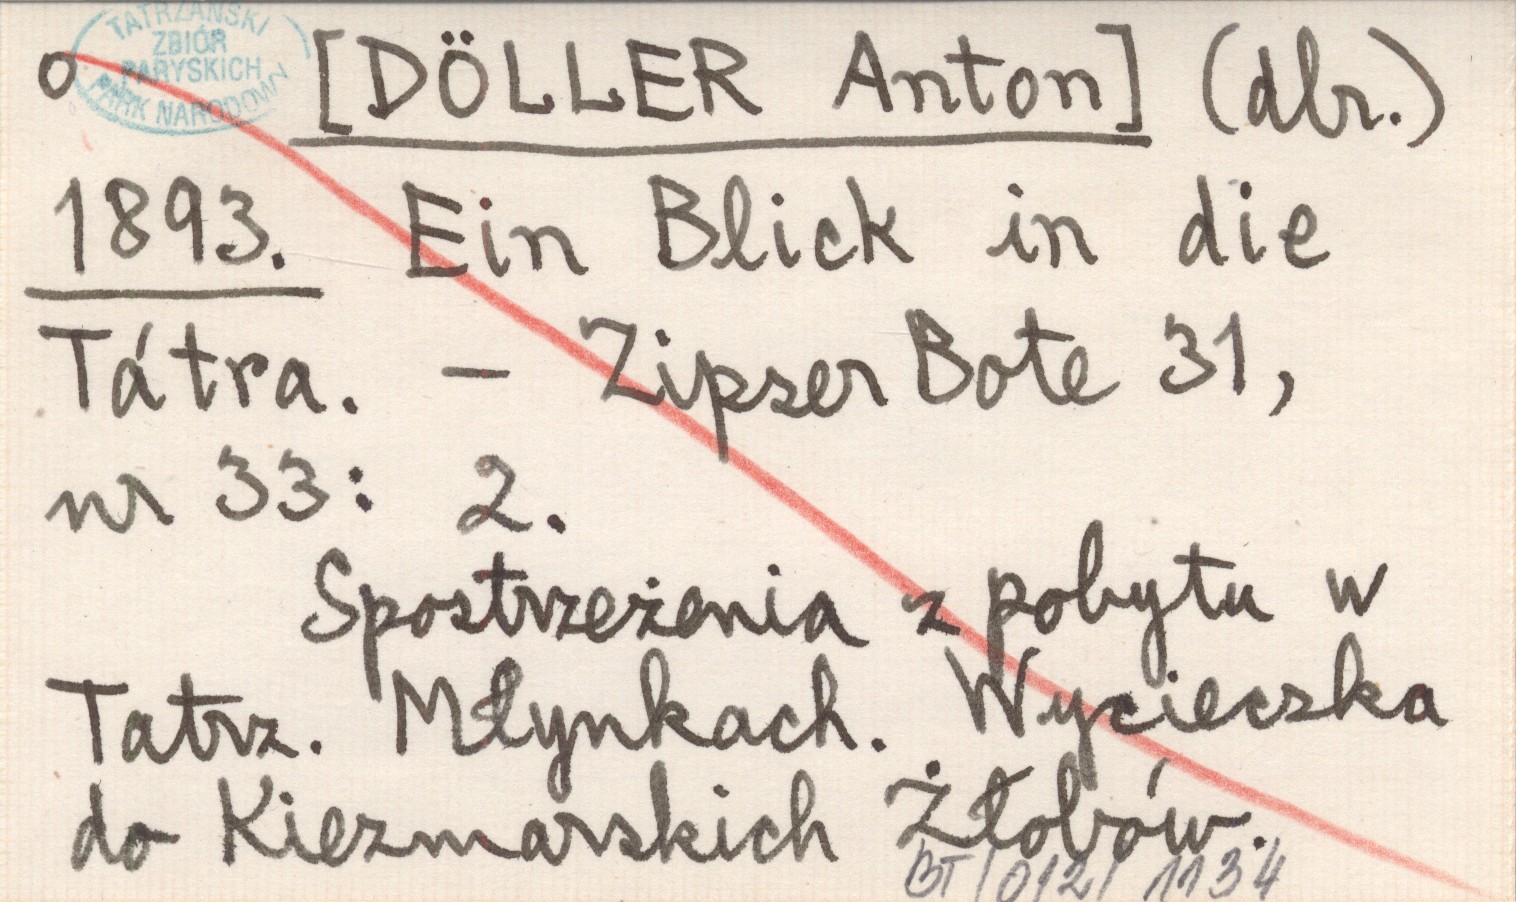 TATRZAŃSKI
ZBIÓR
PARYSKICH
PARK NARODOWY
o [DÖLLER Anton] (dbr.)
1893. Ein Blick in die
Tátra. – Zipser Bote 31,
nr 33: 2.
Spostrzeżenia z pobytu w
Tatrz. Młynkach. Wycieczka
do Kiezmarskich Żłobów.
BT/012/1134